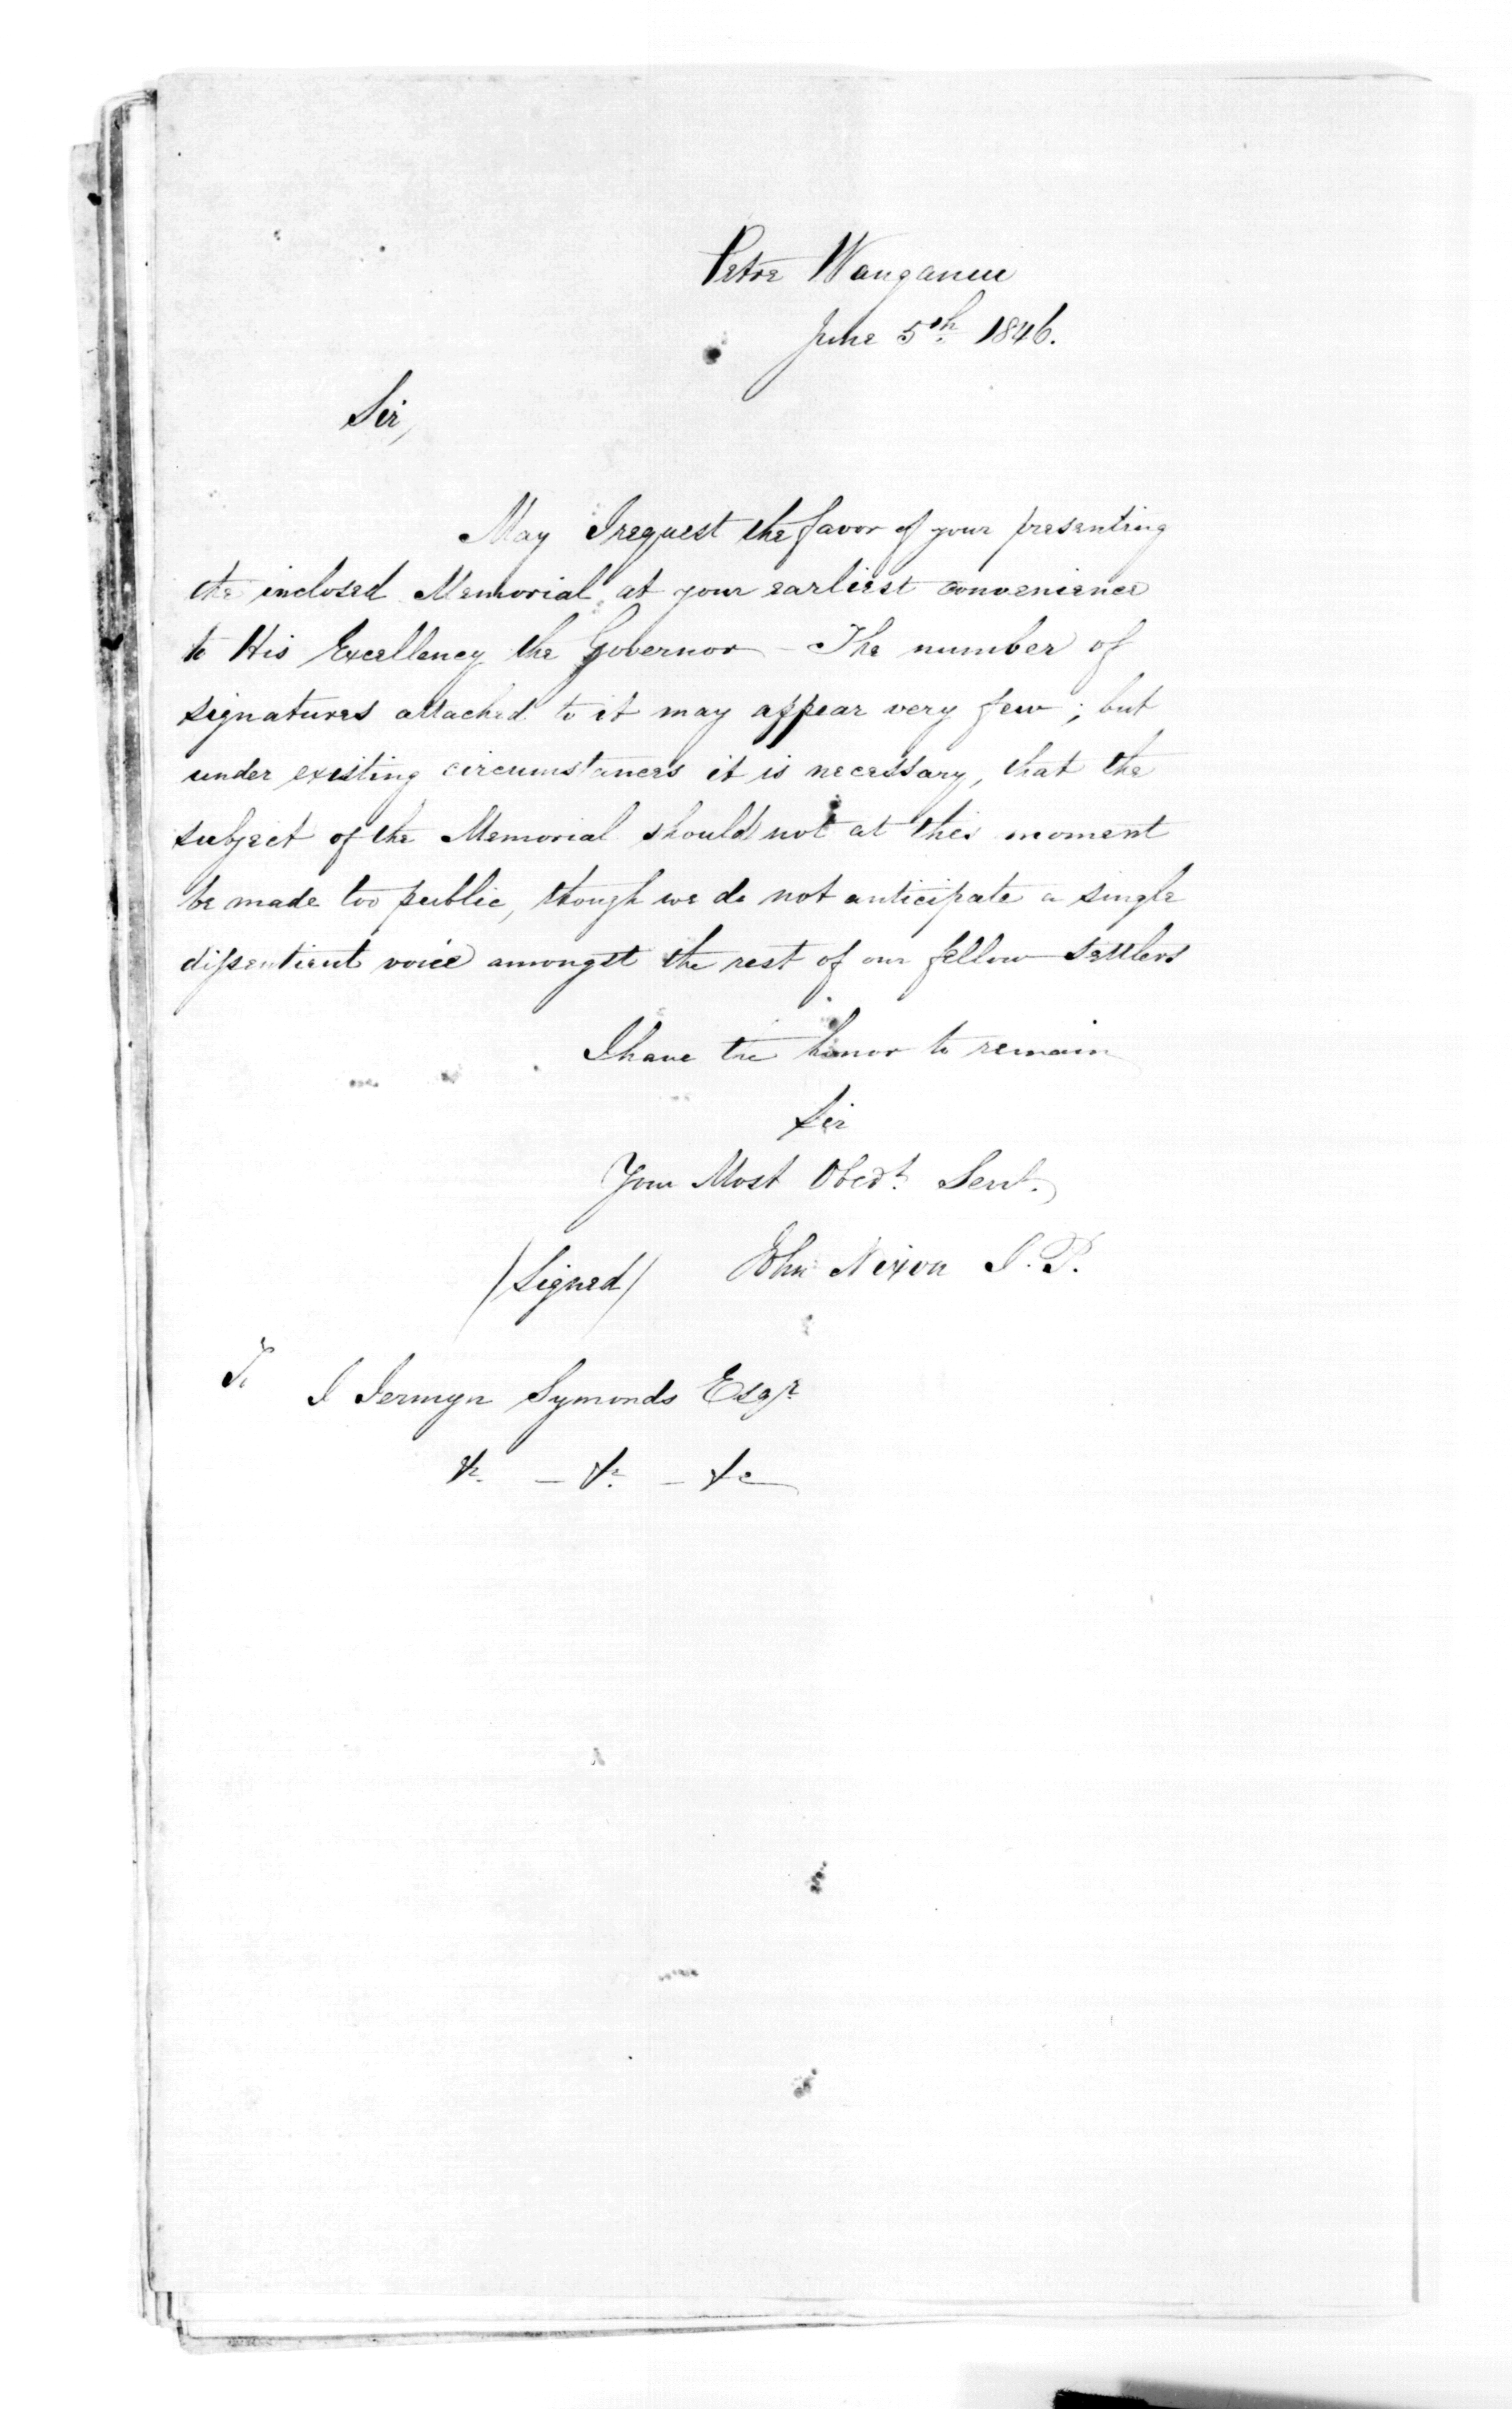 Petre Wanganui
June 5th 1846.
Sir,
May I request the favor of your presenting
the inclosed Memorial at your earliest convenience
to His Excellency the Governor – The number of
signatures attached to it may appear very few; but
under existing circumstances it is necessary, that the
subject of the Memorial should not at this moment
be made too public, though we do not anticipate a single
dissentient voice amongst the rest of our fellow settlers
I have the honor to remain
Sir
Your Most Obedt. Servt.
/Signed/ John Nixon J.P.
To J Jermyn Symonds Esqr
&c – &c – &c